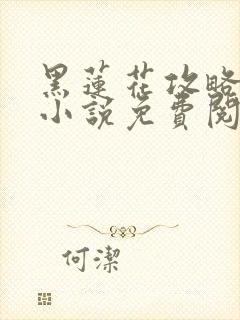 黑蓮花攻略
小說免費閱
何潔